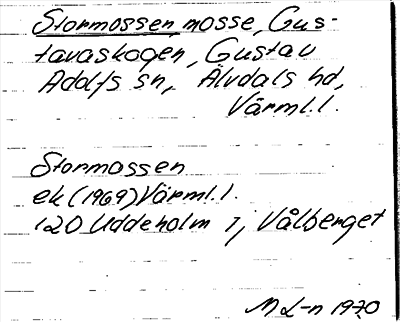 Stormossen, mosse, Gus-
tavaskogen, Gustav
Adolfs sn, Älvdals hd,
Värml.l.
Stormossen
ek (1969) Värml.l.
120 Uddeholm 1j, Vålberget
M L-n 1970